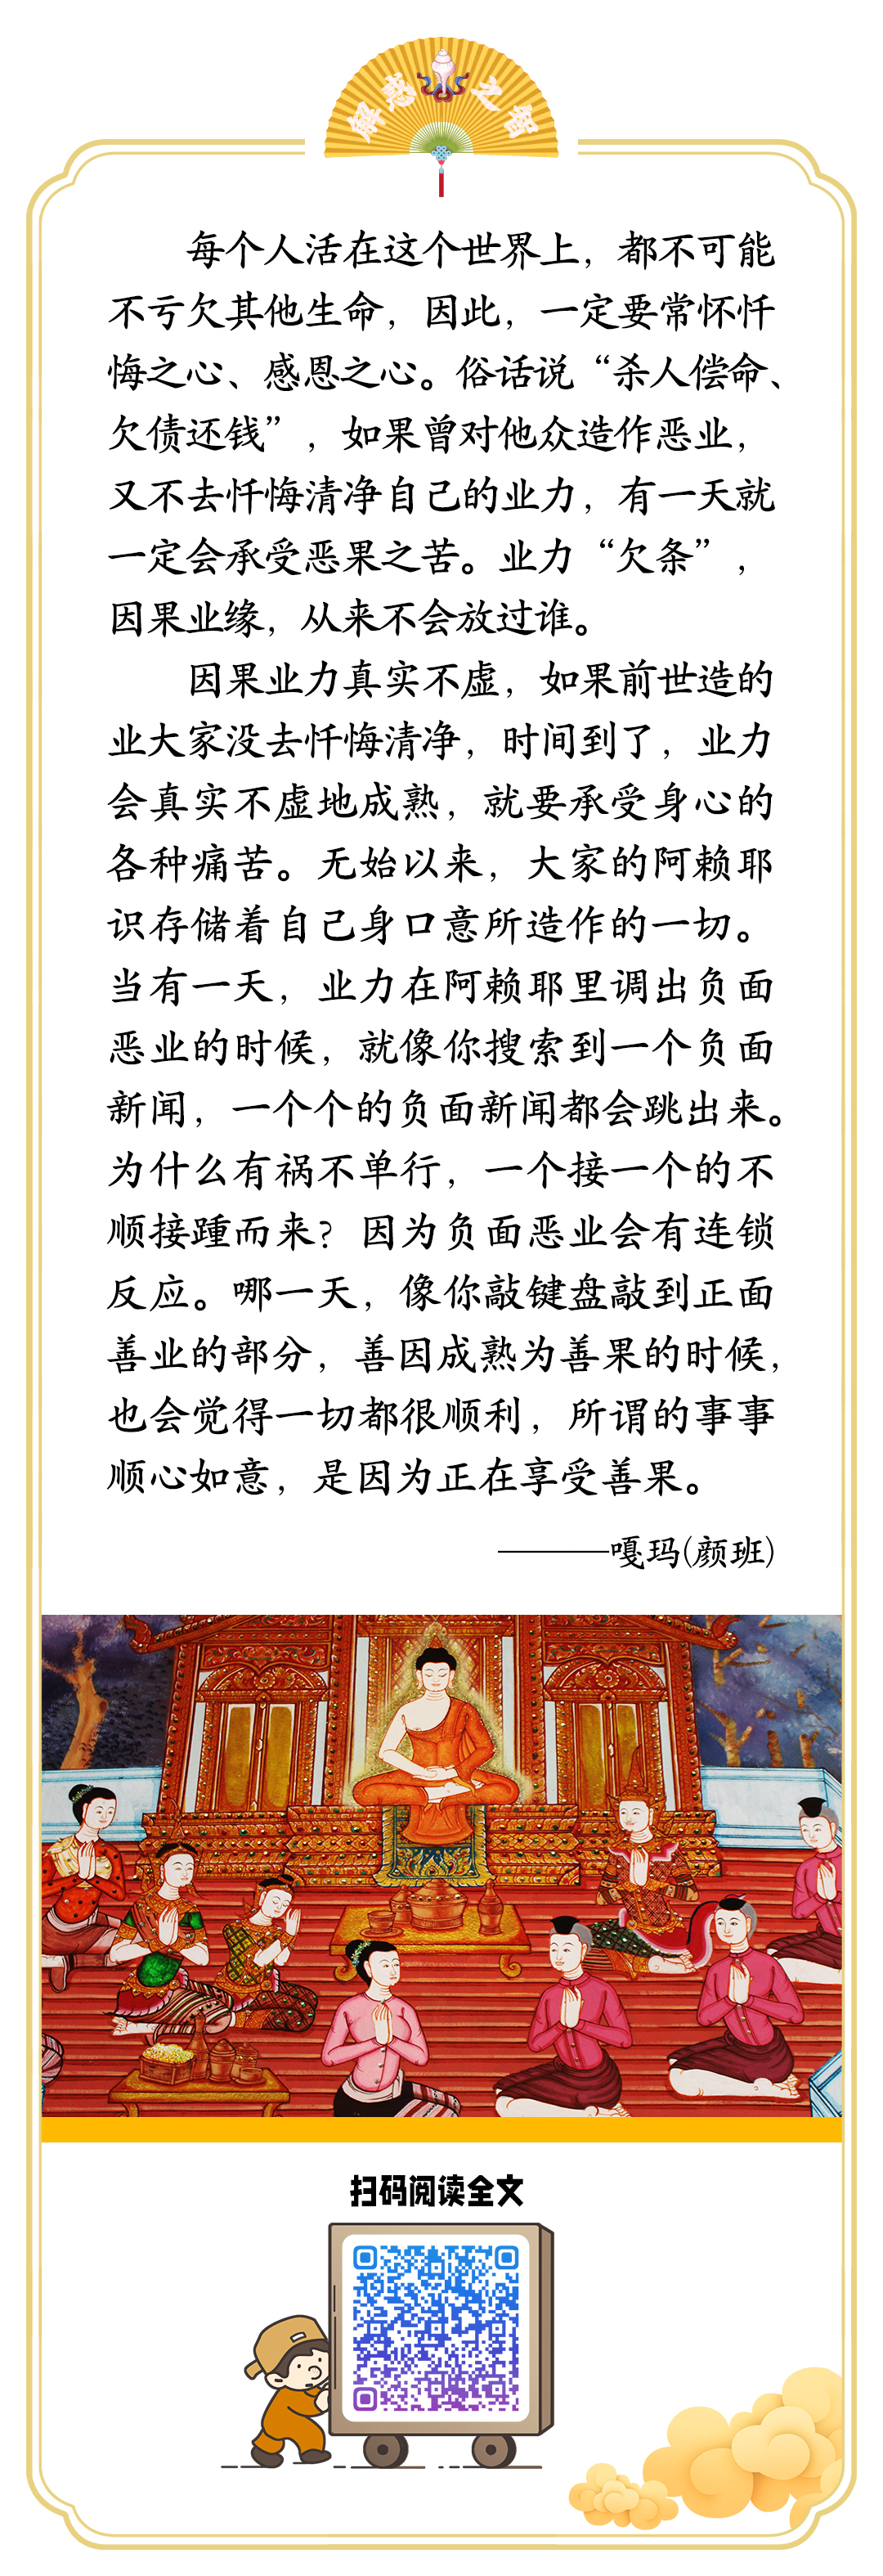 解惑之智
每个人活在这个世界上，都不可能
不亏欠其他生命，因此，一定要常怀忏
悔之心、感恩之心。俗话说“杀人偿命、
欠债还钱”，如果曾对他众造作恶业，
又不去忏悔清净自己的业力，有一天就
一定会承受恶果之苦。业力“欠条”，
因果业缘，从来不会放过谁。
因果业力真实不虚，如果前世造的
业大家没去忏悔清净，时间到了，业力
会真实不虚地成熟，就要承受身心的
各种痛苦。无始以来，大家的阿赖耶
识存储着自己身口意所造作的一切。
当有一天，业力在阿赖耶里调出负面
恶业的时候，就像你搜索到一个负面
新闻，一个个的负面新闻都会跳出来。
为什么有祸不单行，一个接一个的不
顺接踵而来？因为负面恶业会有连锁
反应。哪一天，像你敲键盘敲到正面
善业的部分，善因成熟为善果的时候，
也会觉得一切都很顺利，所谓的事事
顺心如意，是因为正在享受善果。
———嘎玛(颜班)
扫码阅读全文